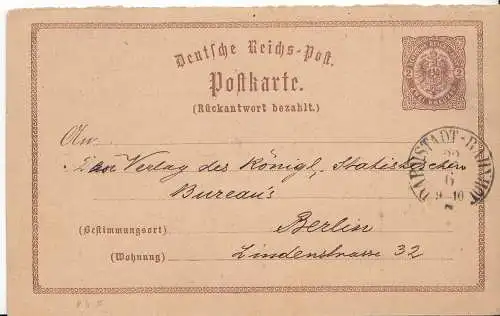 Deutsche Reichs-Post.
Postkarte.
(Rückantwort bezahlt.)
2 2
An
Verlag des Königl. Statistischen
Bureau's
Berlin
(Bestimmungsort)
Lindenstrasse 32
(Wohnung)
DARMSTADT-BAHNHOF
22
6
9-10